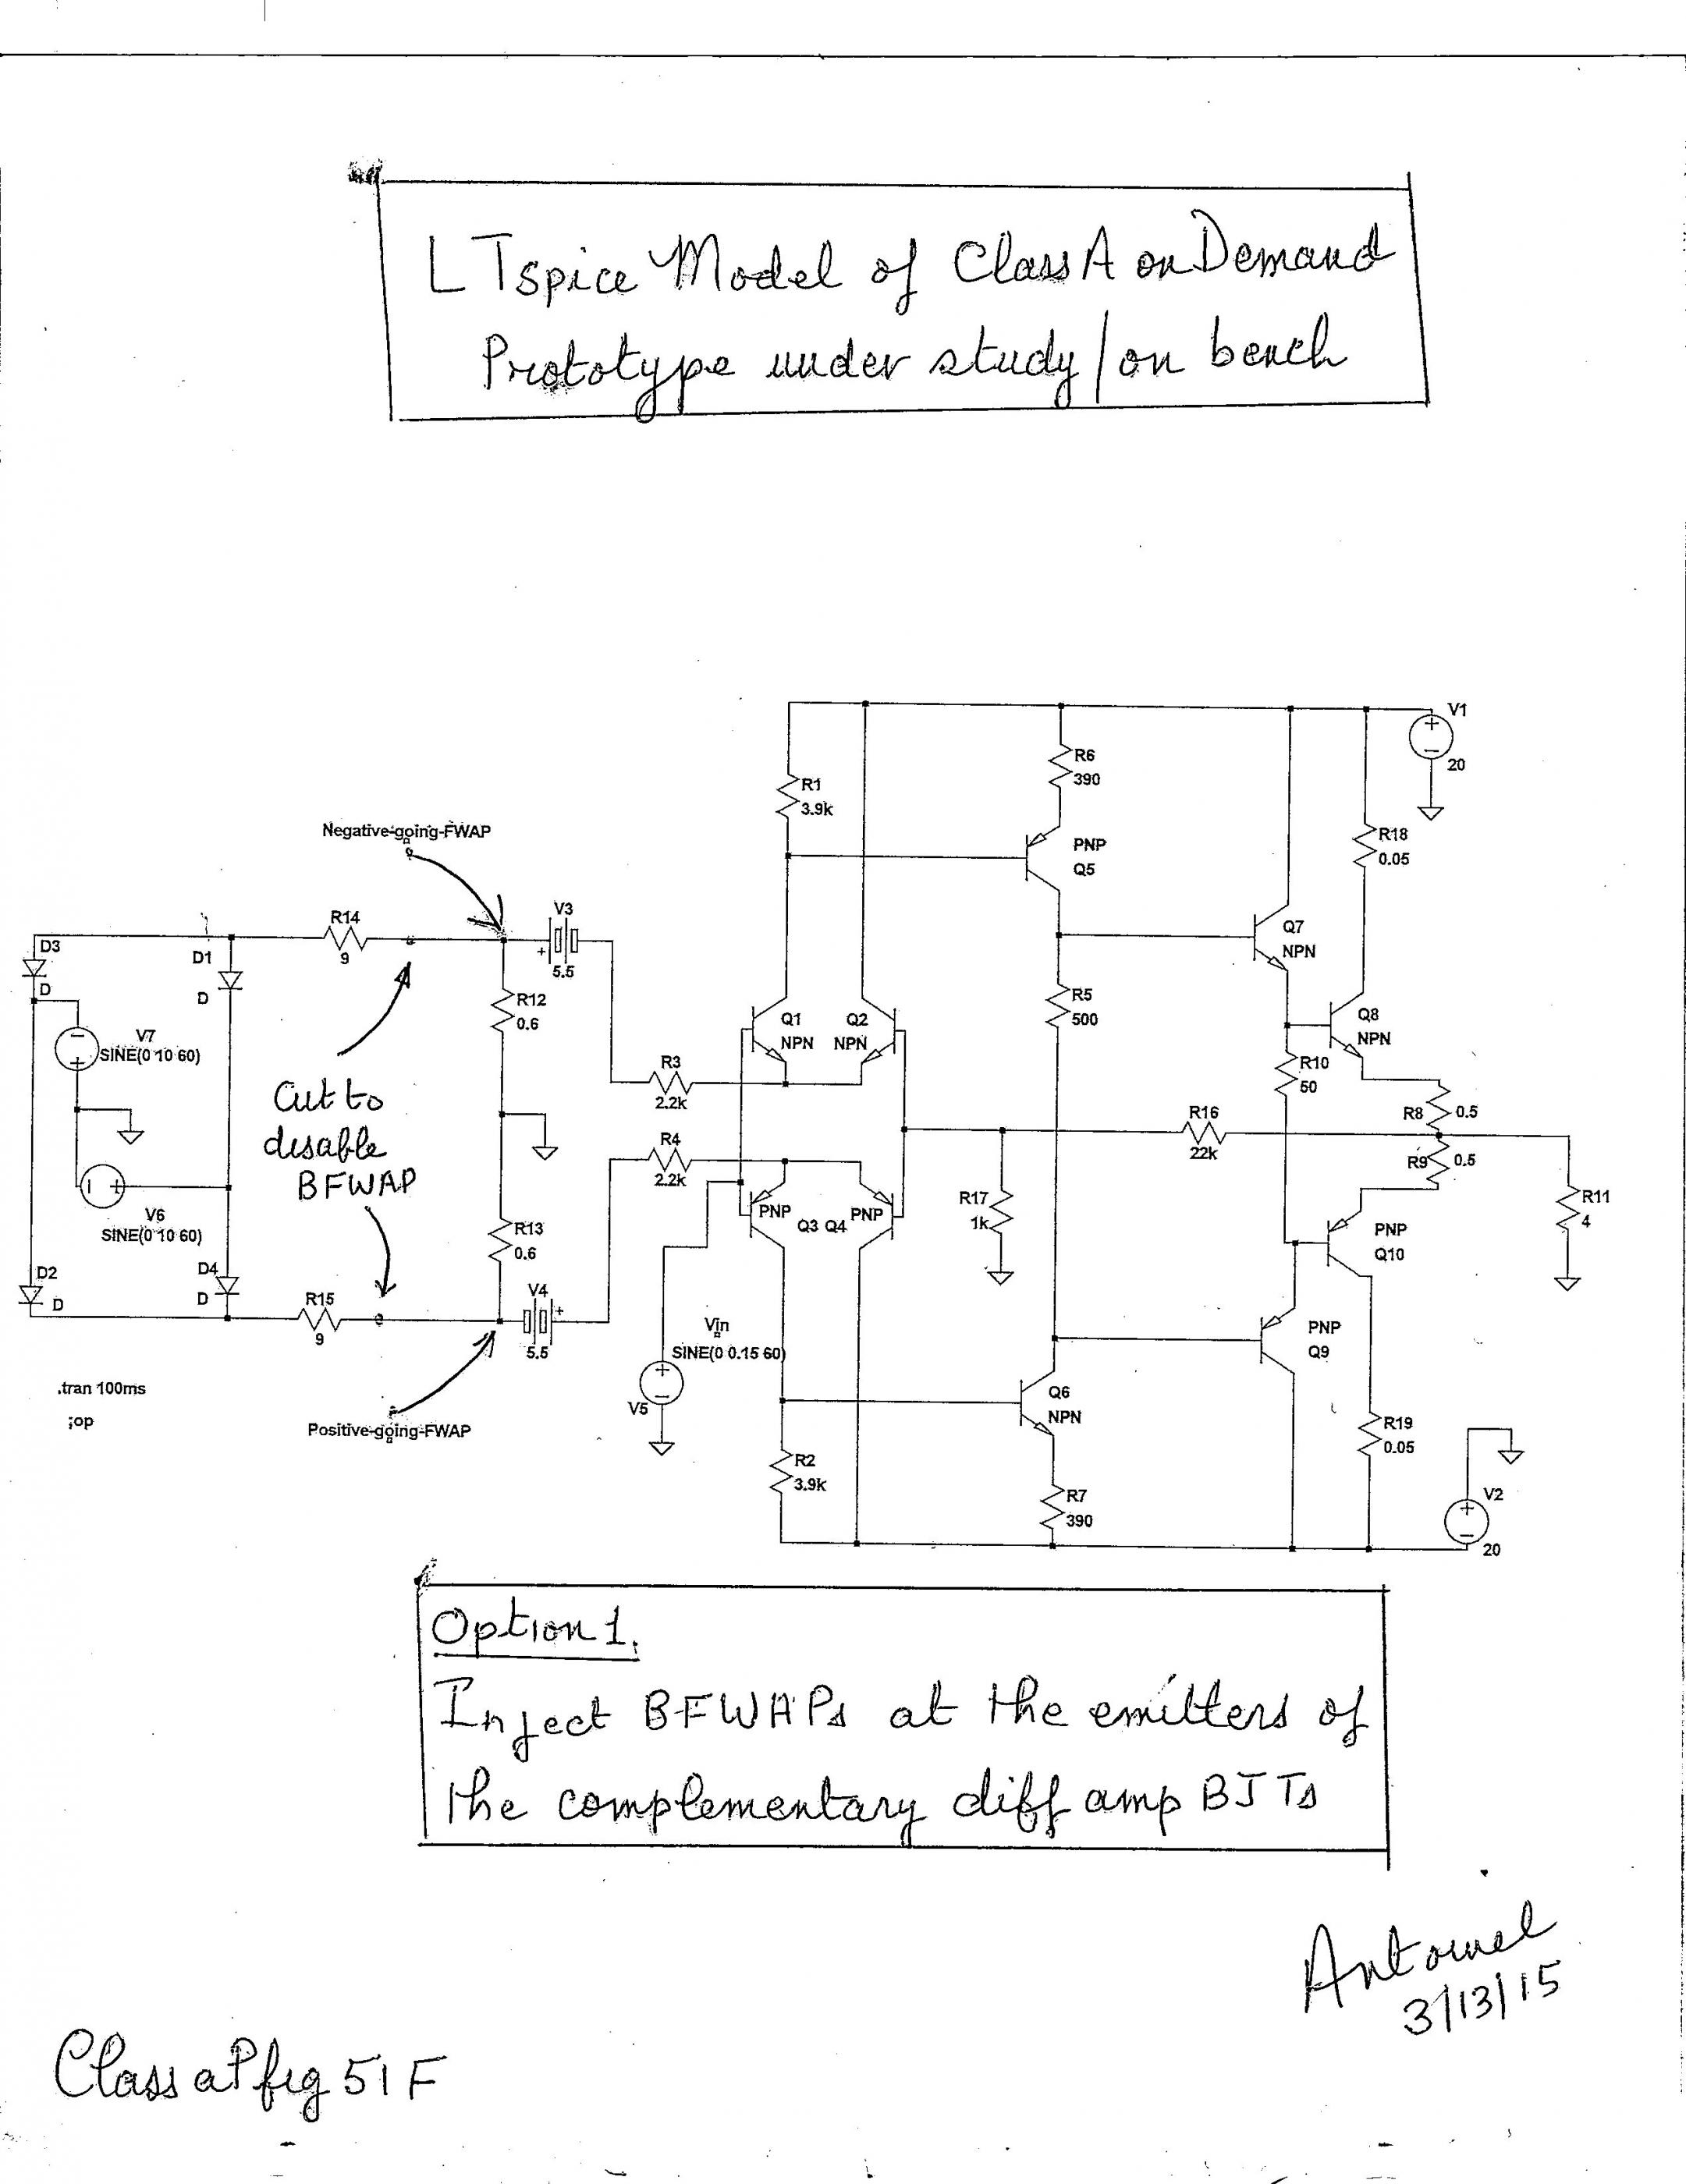 LTspice Model of Class A on Demand
Prototype under study/on bench
V1
20
R6
390
R1
3.9k
R18
0.05
PNP
Q5
Negative-going-FWAP
V3
+
5.5
R14
9
D3
D
D1
D
Q7
NPN
R12
0.6
R5
500
Q1
NPN
Q2
NPN
Q8
NPN
V7
SINE(0 10 60)
R3
2.2k
R10
50
Cut to
disable
BFWAP
R8
0.5
R16
22k
R4
2.2k
R9
0.5
V6
SINE(0 10 60)
R17
1k
R11
4
PNP
Q3
Q4
PNP
PNP
Q10
R13
0.6
D2
D
D4
D
R15
9
V4
+
5.5
Vin
SINE(0 0.15 60)
PNP
Q9
.tran 100ms
;op
V5
Q6
NPN
Positive-going-FWAP
R19
0.05
R2
3.9k
R7
390
V2
20
Option 1.
Inject BFWAPs at the emitters of
the complementary diff amp BJTs
3/13/15
Class aP fig 51F